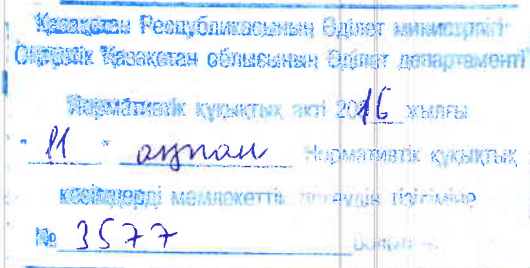 Қазақстан Республикасының Әділет министрлігі
Оңтүстік Қазақстан облысының Әділет департаменті
Нормативтік құқықтық акті 2016 жылғы
" 11 " ақпан Нормативтік құқықтық
кесімдерді мемлекеттік тіркеудің тізіліміне
№ 3577